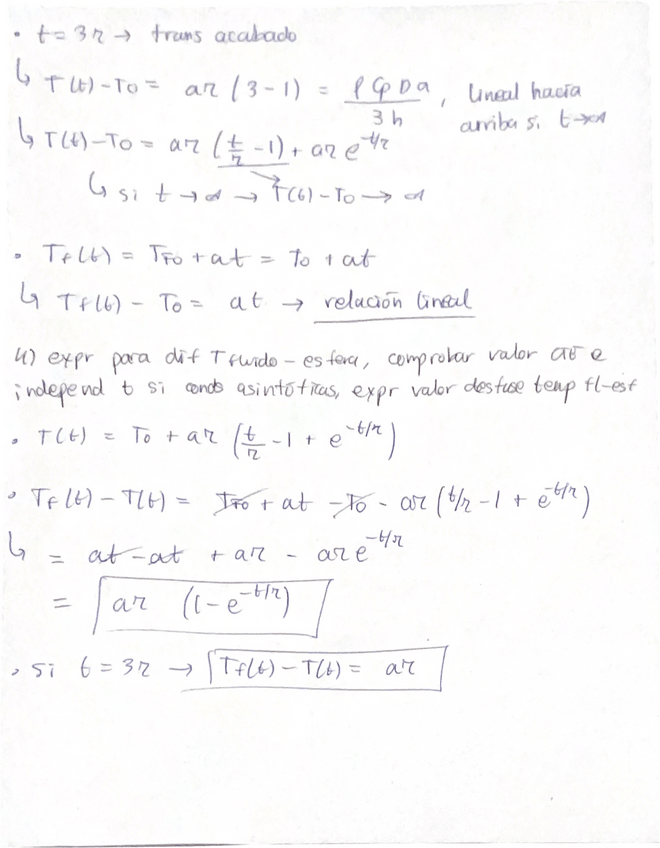 • t = 3τ → trans acabado
↳ T(t) - T0 = aτ (3 - 1) = ρ Cp D a / 3h, lineal hacia arriba si t → ∞
↳ T(t) - T0 = aτ (t/τ - 1) + aτ e^-t/τ
↳ si t → ∞ → T(t) - T0 → ∞
• Tf(t) = TF0 + at = T0 + at
↳ Tf(t) - T0 = at → relación lineal
4) expr para dif T fluido - esfera, comprobar valor cte e
independ t si conds asintóticas, expr valor desfase temp fl-esf
• T(t) = T0 + aτ (t/τ - 1 + e^-t/τ)
• Tf(t) - T(t) = TF0 + at - T0 - aτ (t/τ - 1 + e^-t/τ)
↳ = at - at + aτ - aτ e^-t/τ
= aτ (1 - e^-t/τ)
• si t = 3τ → Tf(t) - T(t) = aτ